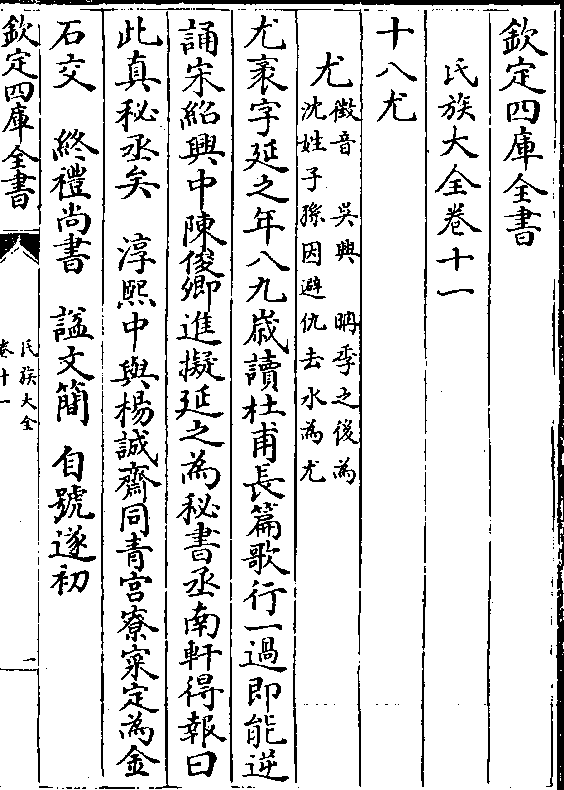 欽定四庫全書
氏族大全卷十一
十八尤
尤
徵音　吳興　聃季之後為
沈姓子孫因避仇去水為尤
尤袤字延之年八九嵗讀杜甫長篇歌行一過即能逆
誦宋紹興中陳俊卿進擬延之為秘書丞南軒得報曰
此真秘丞矣　淳熙中與楊誠齋同青宫寮寀定為金
石交　終禮尚書　諡文簡　自號遂初
欽定四庫全書
氏族大全
卷十一